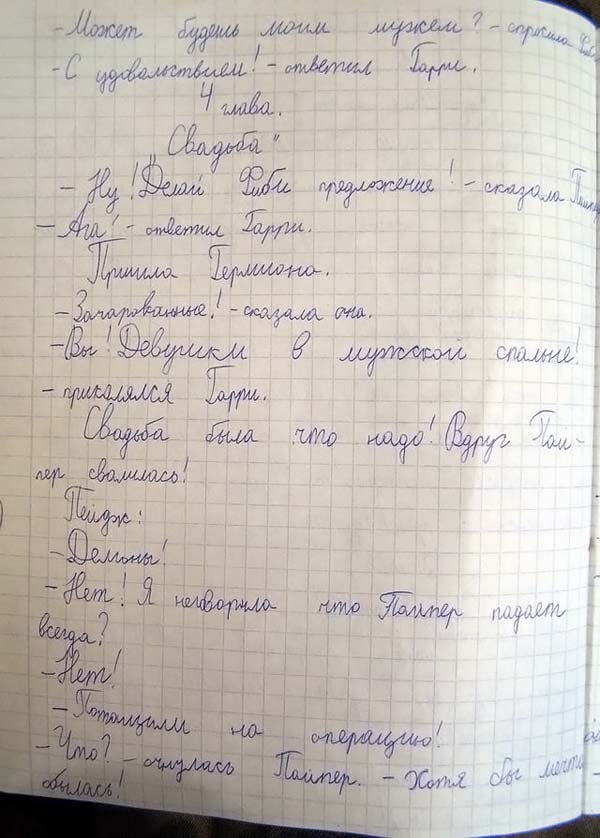 - Может будешь моим мужем? - спросила Фиби
- С удовольствием! - ответил Гарри.
4 глава.
„Свадьба"
- Ну! Делай Фиби предложение! - сказала Пайпер
- Ага! - ответил Гарри.
Пришла Гермиона.
- Зачарованные! - сказала она.
- Вы! Девушки в мужской спальне!
- прикалялся Гарри.
Свадьба была что надо! Вдруг Пай-
пер свалилась!
Пейдж:
- Демоны!
- Нет! Я неговорила что Пайпер падает
всегда?
- Нет!
- Потащили на операцию!
- Что? - очнулась Пайпер. - Хотя бы мечта
сбылась!